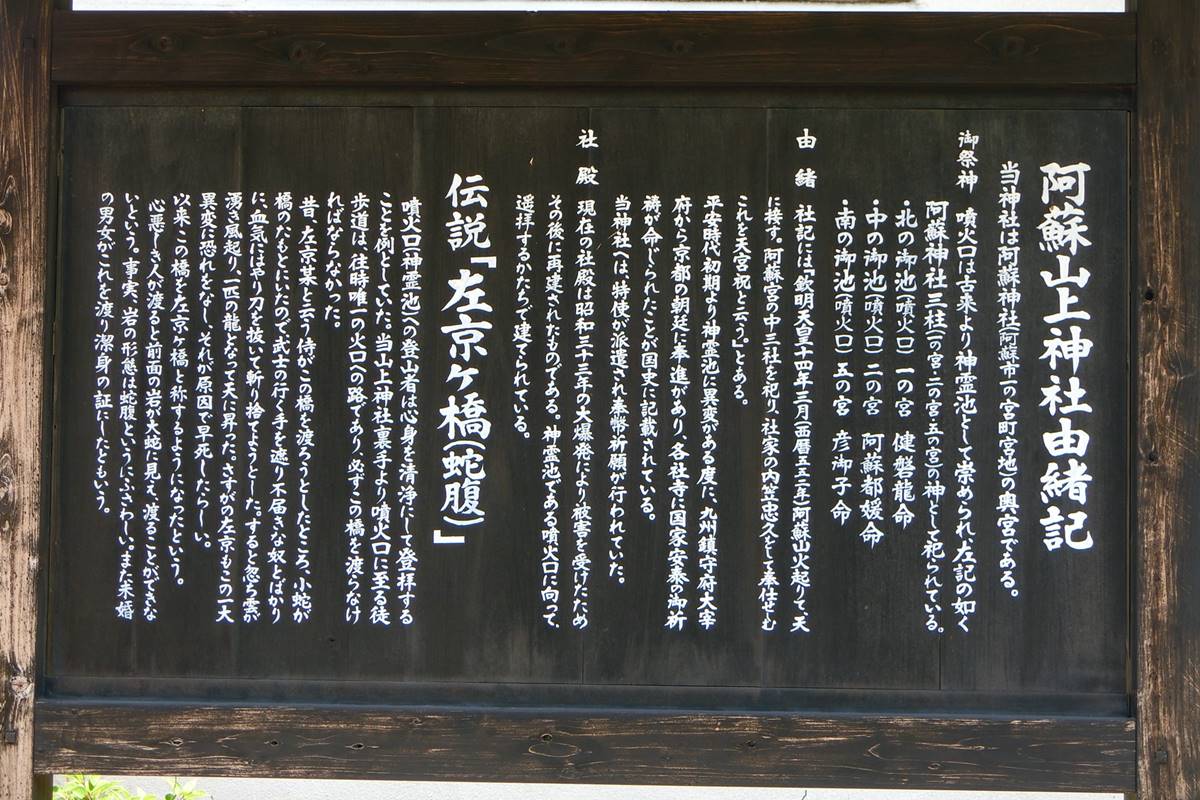 阿蘇山上神社由緒記
当神社は阿蘇神社(阿蘇市一の宮町宮地)の奥宮である。
御祭神 噴火口は古来より神霊池として崇められ左記の如く
阿蘇神社三柱(一の宮・二の宮・五の宮)の神として祀られている。
・北の御池(噴火口)一の宮 健磐龍命
・中の御池(噴火口)二の宮 阿蘇都媛命
・南の御池(噴火口)五の宮 彦御子命
由緒 社記には『欽明天皇十四年三月(西暦五五二年)阿蘇山火起りて、天
に接す。阿蘇宮の中三社を祀り、社家の内笠忠久をして奉仕せむ
これを天宮祝と云う。』とある。
平安時代初期より神霊池に異変がある度に、九州鎮守府大宰
府から京都の朝廷に奉進があり、各社寺に国家安泰の御祈
祷が命じられたことが国史に記載されている。
当神社へは、特使が派遣され奉幣祈願が行われていた。
社殿 現在の社殿は昭和三十三年の大爆発により被害を受けたため
その後に再建されたものである。神霊池である噴火口に向って、
遥拝するかたちで建てられている。
伝説「左京ヶ橋(蛇腹)」
噴火口(神霊池)への登山者は心身を清浄にして登拝する
ことを例としていた。当山上神社裏手より噴火口に至る徒
歩道は、往時唯一の火口への路であり、必ずこの橋を渡らなけ
ればならなかった。
昔、左京某と云う侍がこの橋を渡ろうとしたところ、小蛇が
橋のたもとにいたので武士の行く手を遮り不届きな奴とばかり
に、血気にはやり刀を抜いて斬り捨てようとした。すると忽ち雲が
湧き風起り、一匹の龍となって天に昇った。さすがの左京もこの一大
異変に恐れをなし、それが原因で早死したらしい。
以来この橋を左京ヶ橋と称するようになったという。
心悪しき人が渡ると前面の岩が大蛇に見え、渡ることができな
いという。事実、岩の形態は蛇腹というにふさわしい。また未婚
の男女がこれを渡り潔身の証にしたともいう。